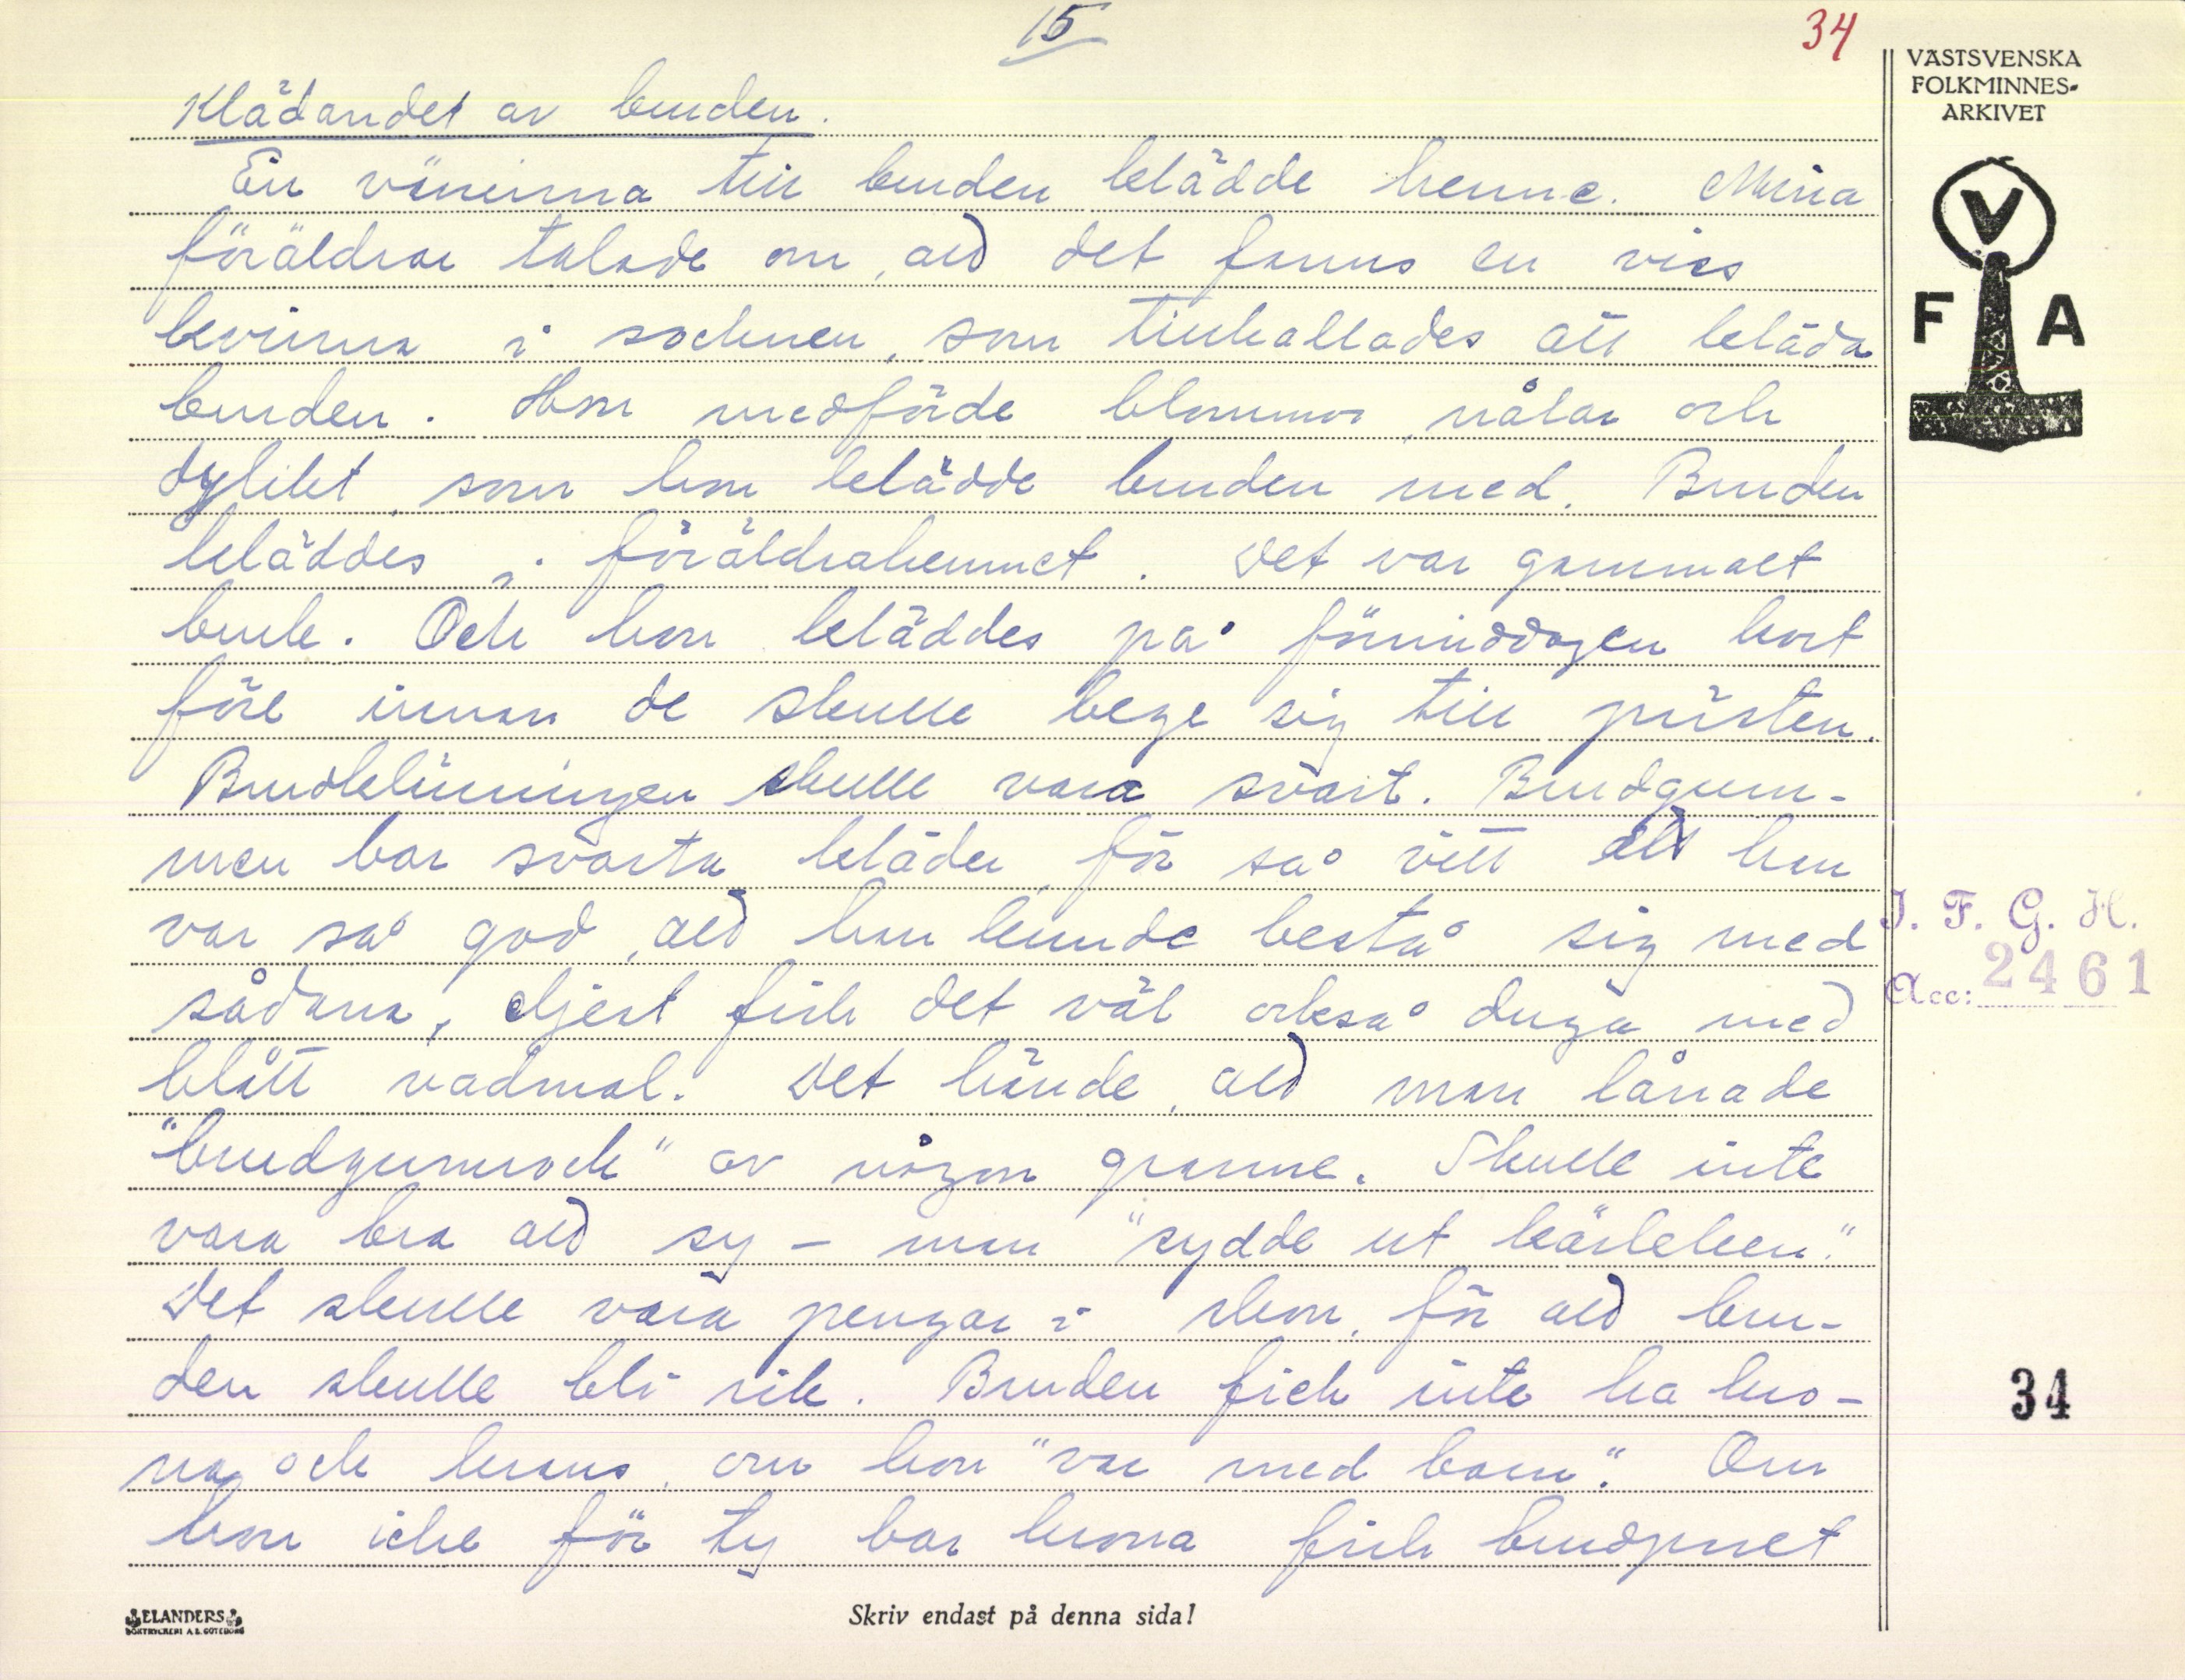 15
34
VÄSTSVENSKA
FOLKMINNES-
ARKIVET
V
F A
Klädandet av bruden.
En väninna till bruden klädde henne. Mina
föräldrar talade om, att det fanns en viss
kvinna i socknen, som tillkallades att kläda
bruden. Hon medförde blommor, nålar och
dylikt, som hon klädde bruden med. Bruden
kläddes i föräldrahemmet. Det var gammalt
bruk. Och hon kläddes på förmiddagen kort
före innan de skulle bege sig till prästen.
Brudklänningen skulle vara svart. Brudgum-
men bar svarta kläder, för så vitt att han
var så god, att han kunde bestå sig med
sådana, eljest fick det väl också duga med
blått vadmal. Det hände, att man lånade
"brudgumrock" av någon granne. Skulle inte
vara bra att sy - man "sydde ut kärleken."
Det skulle vara pengar i skon, för att bru-
den skulle bli rik. Bruden fick inte ha kro-
na och krans, om hon "var med barn". Om
hon icke för ty bar krona fick brudparet
I. F. G. H.
Acc: 2461
34
ELANDERS
BOKTRYCKERI A.B. GÖTEBORG
Skriv endast på denna sida!